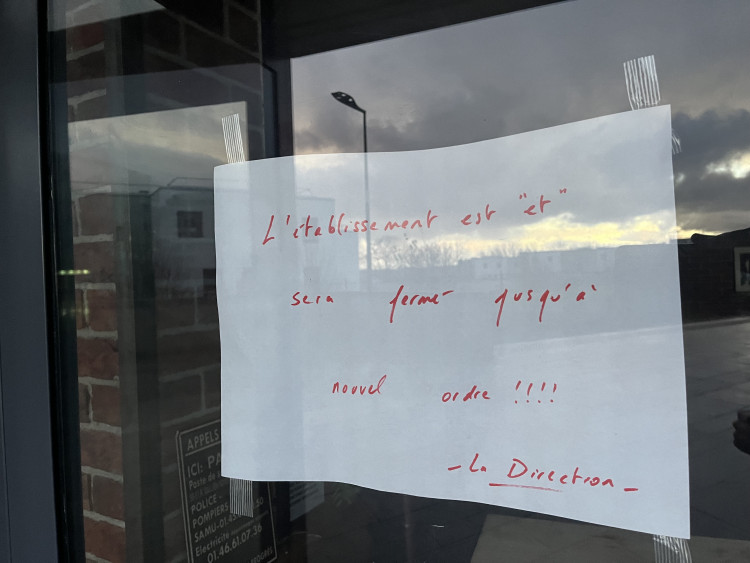 L'établissement est "et"
sera fermé jusqu'à
nouvel ordre !!!!
- La Direction -
APPELS
ICI: PA
POLICE -
POMPIERS
SAMU-01.45
Electricité
01.46.61.07.36